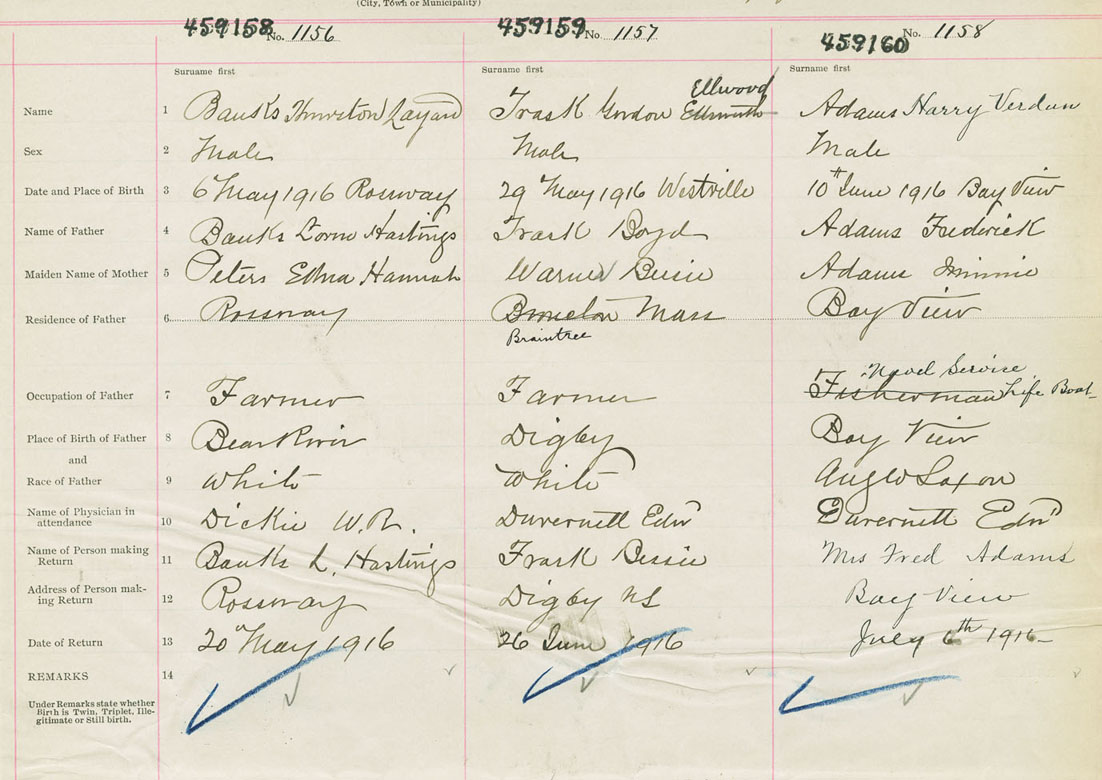 (City, Town or Municipality)
459158 No. 1156 459159 No. 1157 459160 No. 1158
Surname first Surname first Surname first
Name 1 Banks Trask Gordon Ellwood Adams Harry Verdun
Sex 2 Male Male Male
Date and Place of Birth 3 6" May 1916 Rossway 29" May 1916 Westville 10th June 1916 Bay View
Name of Father 4 Banks Lorne Hastings Trask Boyd Adams Frederick
Maiden Name of Mother 5 Peters Edna Hannah Warner Bessie Adams Minnie
Residence of Father 6 Rossway Mass Bay View
Braintree
Naval Service
Occupation of Father 7 Farmer Farmer Fisherman Life Boat
Place of Birth of Father 8 Bear River Digby Bay View
and
Race of Father 9 White White Anglo Saxon
Name of Physician in
attendance 10 Dickie W.R. Duvernett Edn Duvernett Edn
Name of Person making
Return 11 Banks L. Hastings Trask Bessie Mrs Fred Adams
Address of Person mak-
ing Return 12 Rossway Digby NS Bay View
Date of Return 13 20" May 1916 26 June 1916 July 6th 1916
REMARKS 14
Under Remarks state whether
Birth is Twin, Triplet, Ille-
gitimate or Still birth.